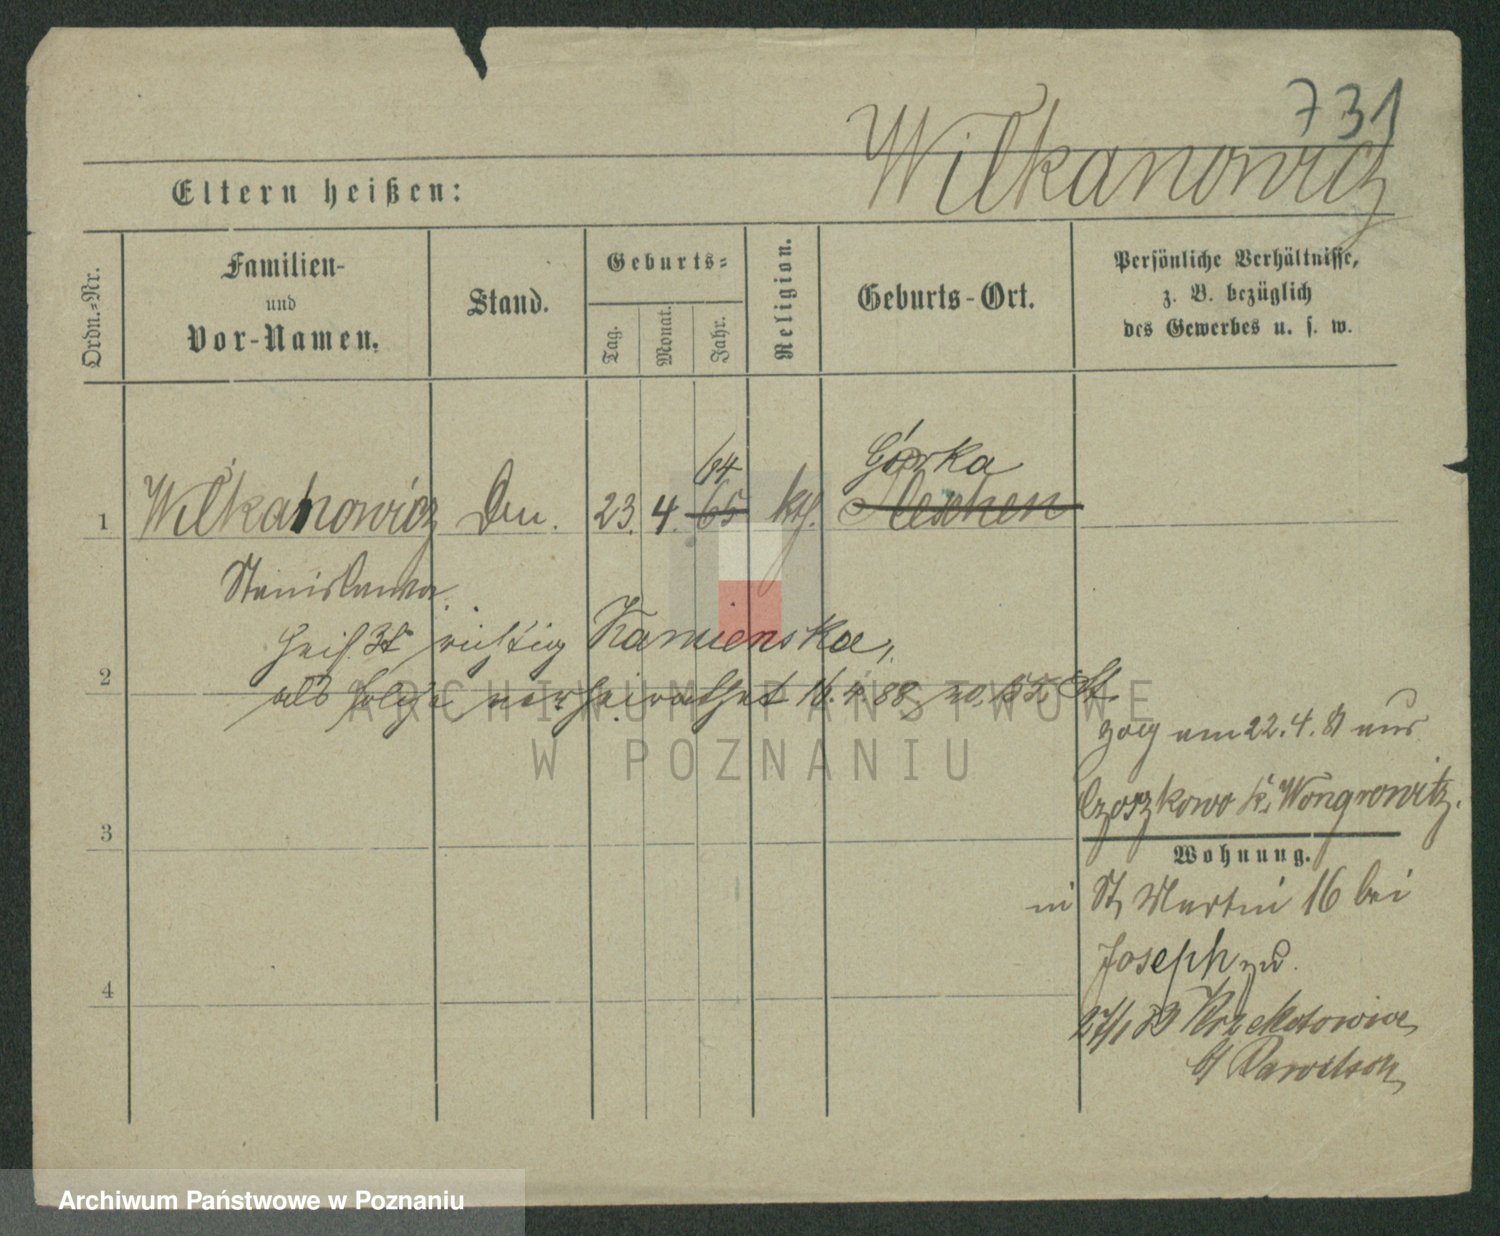 731
Wilkanowicz
Eltern heißen:
Ordn.-Nr.
Familien-
und
Vor-Namen.
Stand.
Geburts-
Tag.
Monat.
Jahr.
Religion.
Geburts-Ort.
Persönliche Verhältnisse,
z. B. bezüglich
des Gewerbes u. s. w.
64
Górka
1 Wilkanowicz 23. 4. 65 kth.
Stanislawa
heißt richtig Kamienska,
2
als solche verheirathet 16.4.88 St.
zog am 22.4.81 aus
Wongrowitz.
3
Wohnung.
in St. Martin 16 bei
Joseph
4
27/1 83
Rawitsch
ARCHIWUM PAŃSTWOWE
W POZNANIU
Archiwum Państwowe w Poznaniu